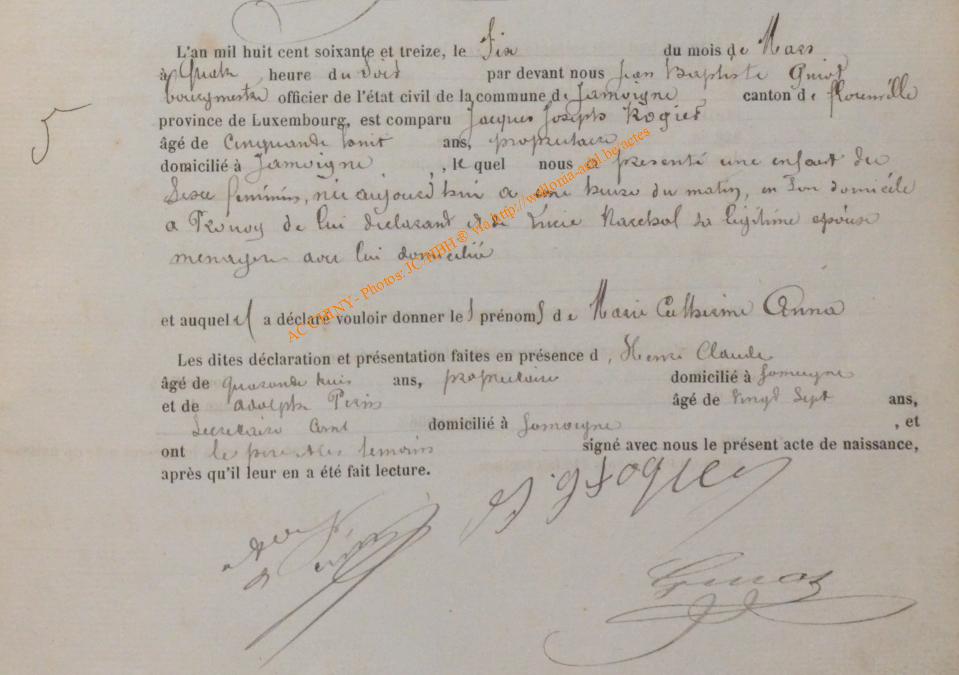 L'an mil huit cent soixante et treize, le Six du mois de Mars
à quatre heure du Soir par devant nous Jean Baptiste Guiot
bourgmestre officier de l'état civil de la commune de Jamoigne, canton de florenville
province de Luxembourg, est comparu Jacques Joseph Rogier
âgé de Cinquante huit ans, propriétaire
domicilié à Jamoigne, lequel nous a présenté une enfant du
Sexe féminin, née aujourd'hui a une heure du matin, en Son domicile
a Pronoy de lui déclarant et de Lucie Marechal sa légitime épouse
menagere avec lui domicilié
et auquel il a déclaré vouloir donner les prénoms de Marie Catherine Anna
Les dites déclaration et présentation faites en présence d, Henri Claude
âgé de quarante huit ans, propriétaire domicilié à Jamoigne
et de adolphe Périn âgé de vingt Sept ans,
Secrétaire Coml domicilié à Jamoigne, et
ont le père et les temoins signé avec nous le présent acte de naissance,
après qu'il leur en a été fait lecture.
5
AC CHINY - Photos: JC-NBH ® via http://wallonia-asbl.be/actes